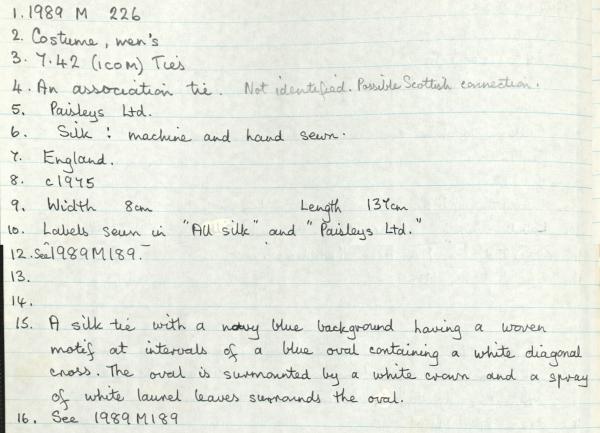 1. 1989 M 226
2. Costume, men's
3. 7.42 (ICOM) Ties
4. An association tie. Not identified. Possible Scottish connection.
5. Paisleys Ltd.
6. Silk : machine and hand sewn.
7. England.
8. c1975
9. Width 8cm Length 137cm
10. Labels sewn in "All silk" and "Paisleys Ltd."
12. See 1989M189.
13.
14.
15. A silk tie with a navy blue background having a woven
motif at intervals of a blue oval containing a white diagonal
cross. The oval is surmounted by a white crown and a spray
of white laurel leaves surrounds the oval.
16. See 1989M189